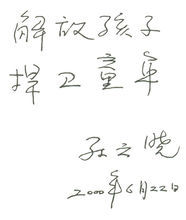 解放孩子
捍卫童年
孙云晓
2000年6月22日